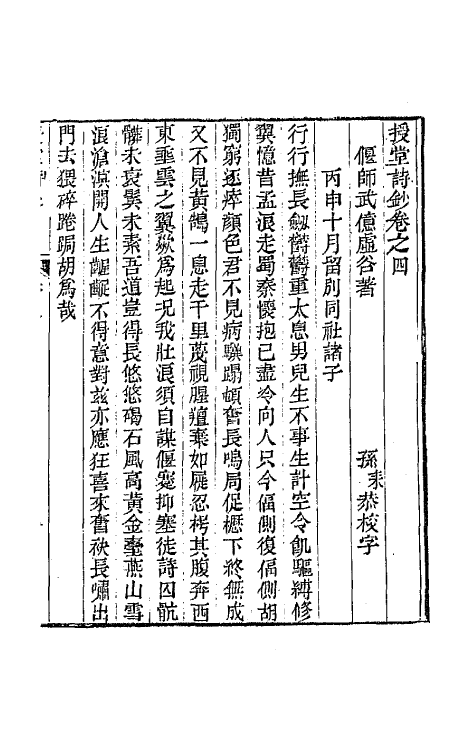 授堂詩鈔卷之四
偃師武億虛谷著　孫耒恭校字
丙申十月留別同社諸子
行行撫長劒欝欝重太息男兒生不事生計空令飢驅縛修
翼憶昔孟浪走蜀秦懷抱已盡今向人只今偪側復偪側胡
獨窮途瘁顏色君不見病驥蹋頓奮長鳴局促櫪下終無成
又不見黃鵠一息走千里蔑視腥羶棄如屣忍枵其腹奔西
東垂雲之翼歘為起况我壯浪須自謀偃蹇抑塞徒詩囚骯
髒未衰鬓未素吾道豈得長悠悠碣石風高黃金臺燕山雪
浪滄溟開人生齷齪不得意對兹亦應狂喜來奮袂長嘯出
門去猥碎踡跼胡為哉